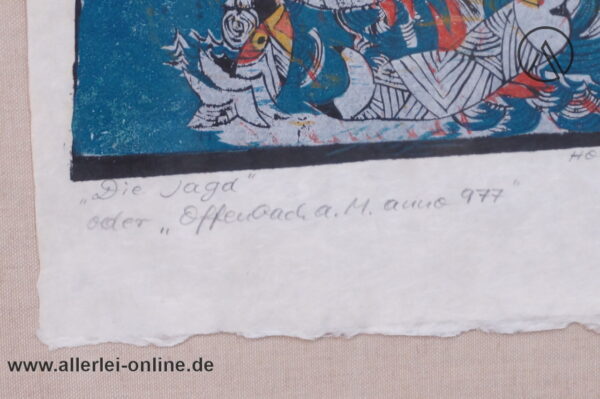 „Die Jagd"
HO
oder „Offenbach a. M. anno 977"
www.allerlei-online.de